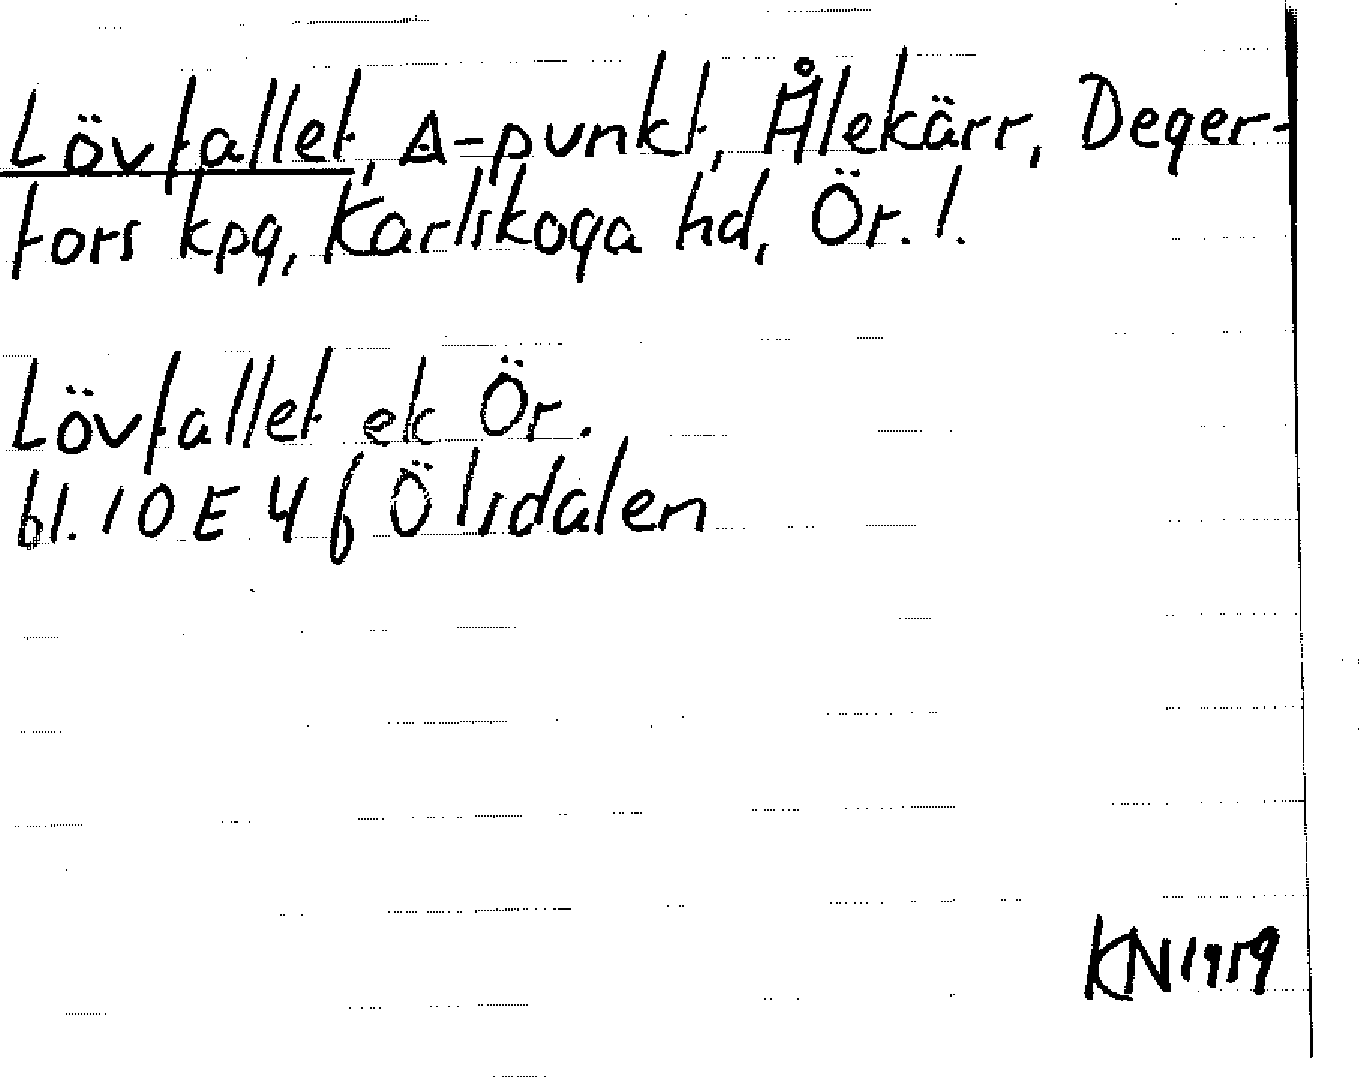 Lövfallet, A-punkt, Ålekärr, Deger-
fors kpg, Karlskoga hd, Ör. l.
Lövfallet ek Ör.
bl. 10 E 4 f Ölsdalen
KN 1959